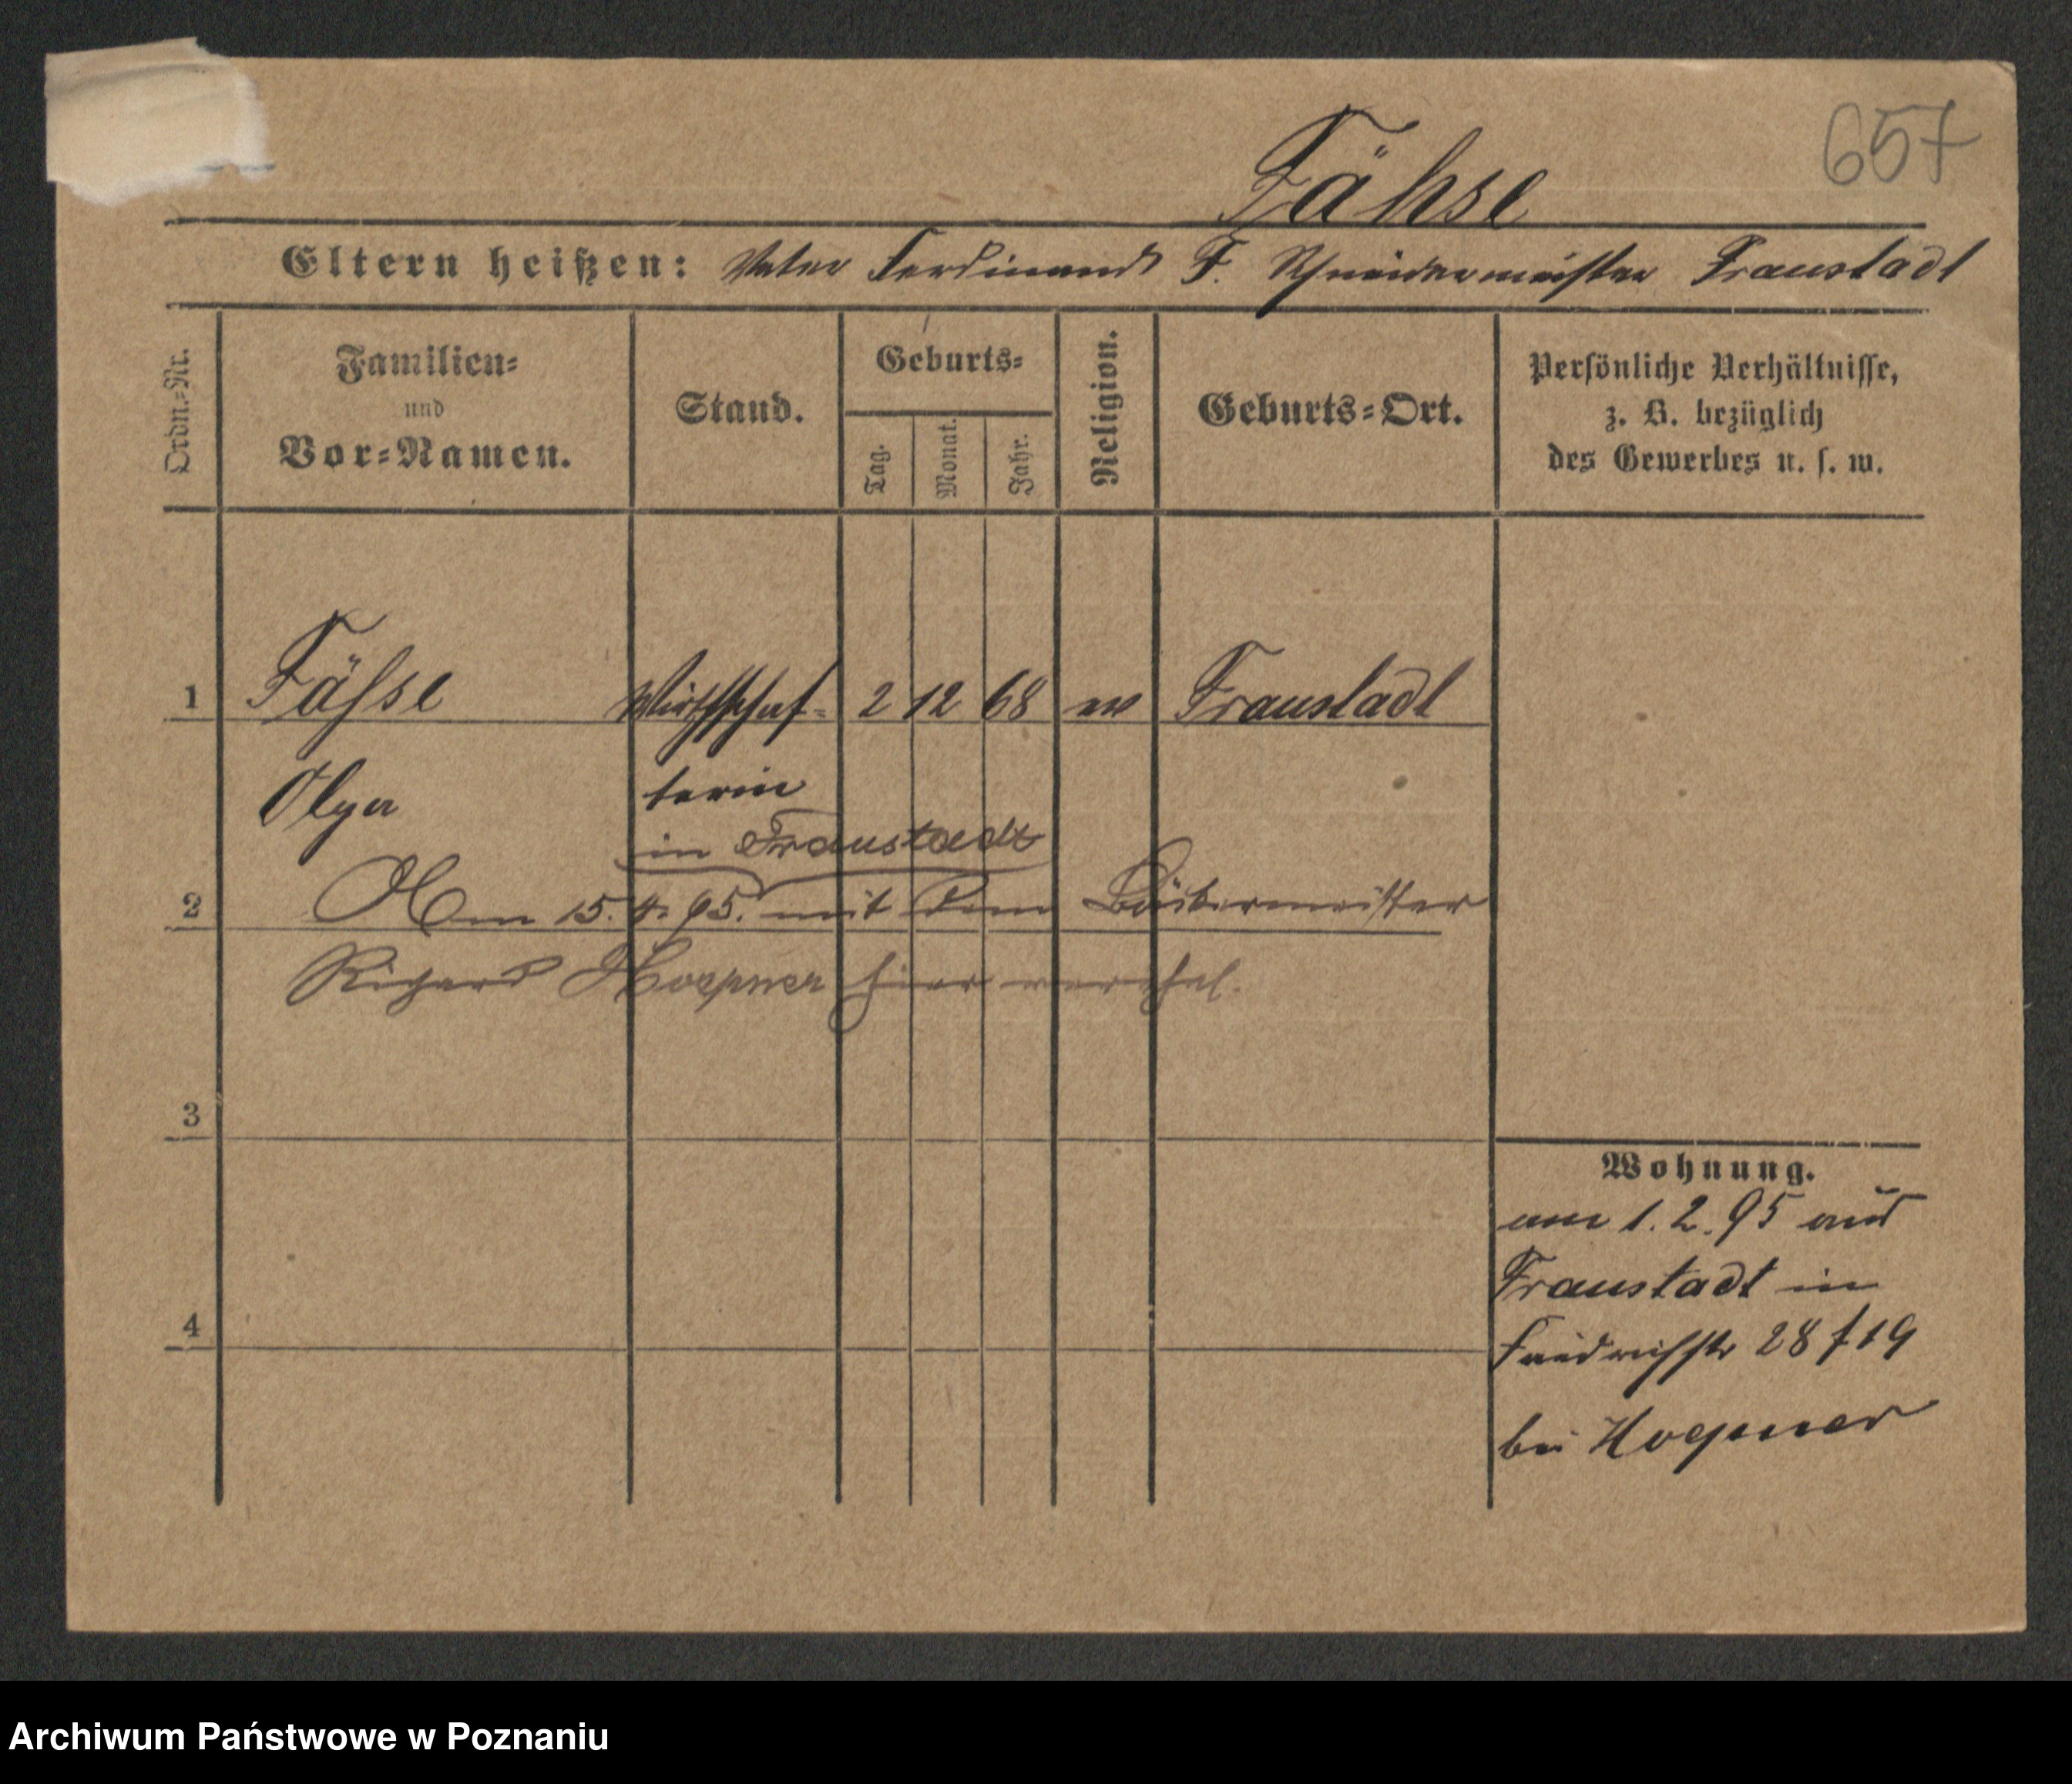 657
Fähse
Eltern heißen: Vater Ferdinand F. Schneidermeister Fraustadt
Ordn.-Nr.
Familien- und Vor-Namen.
Stand.
Geburts-
Tag.
Monat.
Jahr.
Religion.
Geburts-Ort.
Persönliche Verhältnisse,
z. B. bezüglich
des Gewerbes u. s. w.
1 Fähse Wirthschaf- 2 12 68 ev Fraustadt
Olga terin
in Fraustadt
2 Am 15. 4. 95. mit dem Bäckermeister
Richard Hoepner hier verehel.
3
4
Wohnung.
am 1. 2. 95 aus
Fraustadt in
Friedrichstr 28 f 19
bei Hoepner
Archiwum Państwowe w Poznaniu